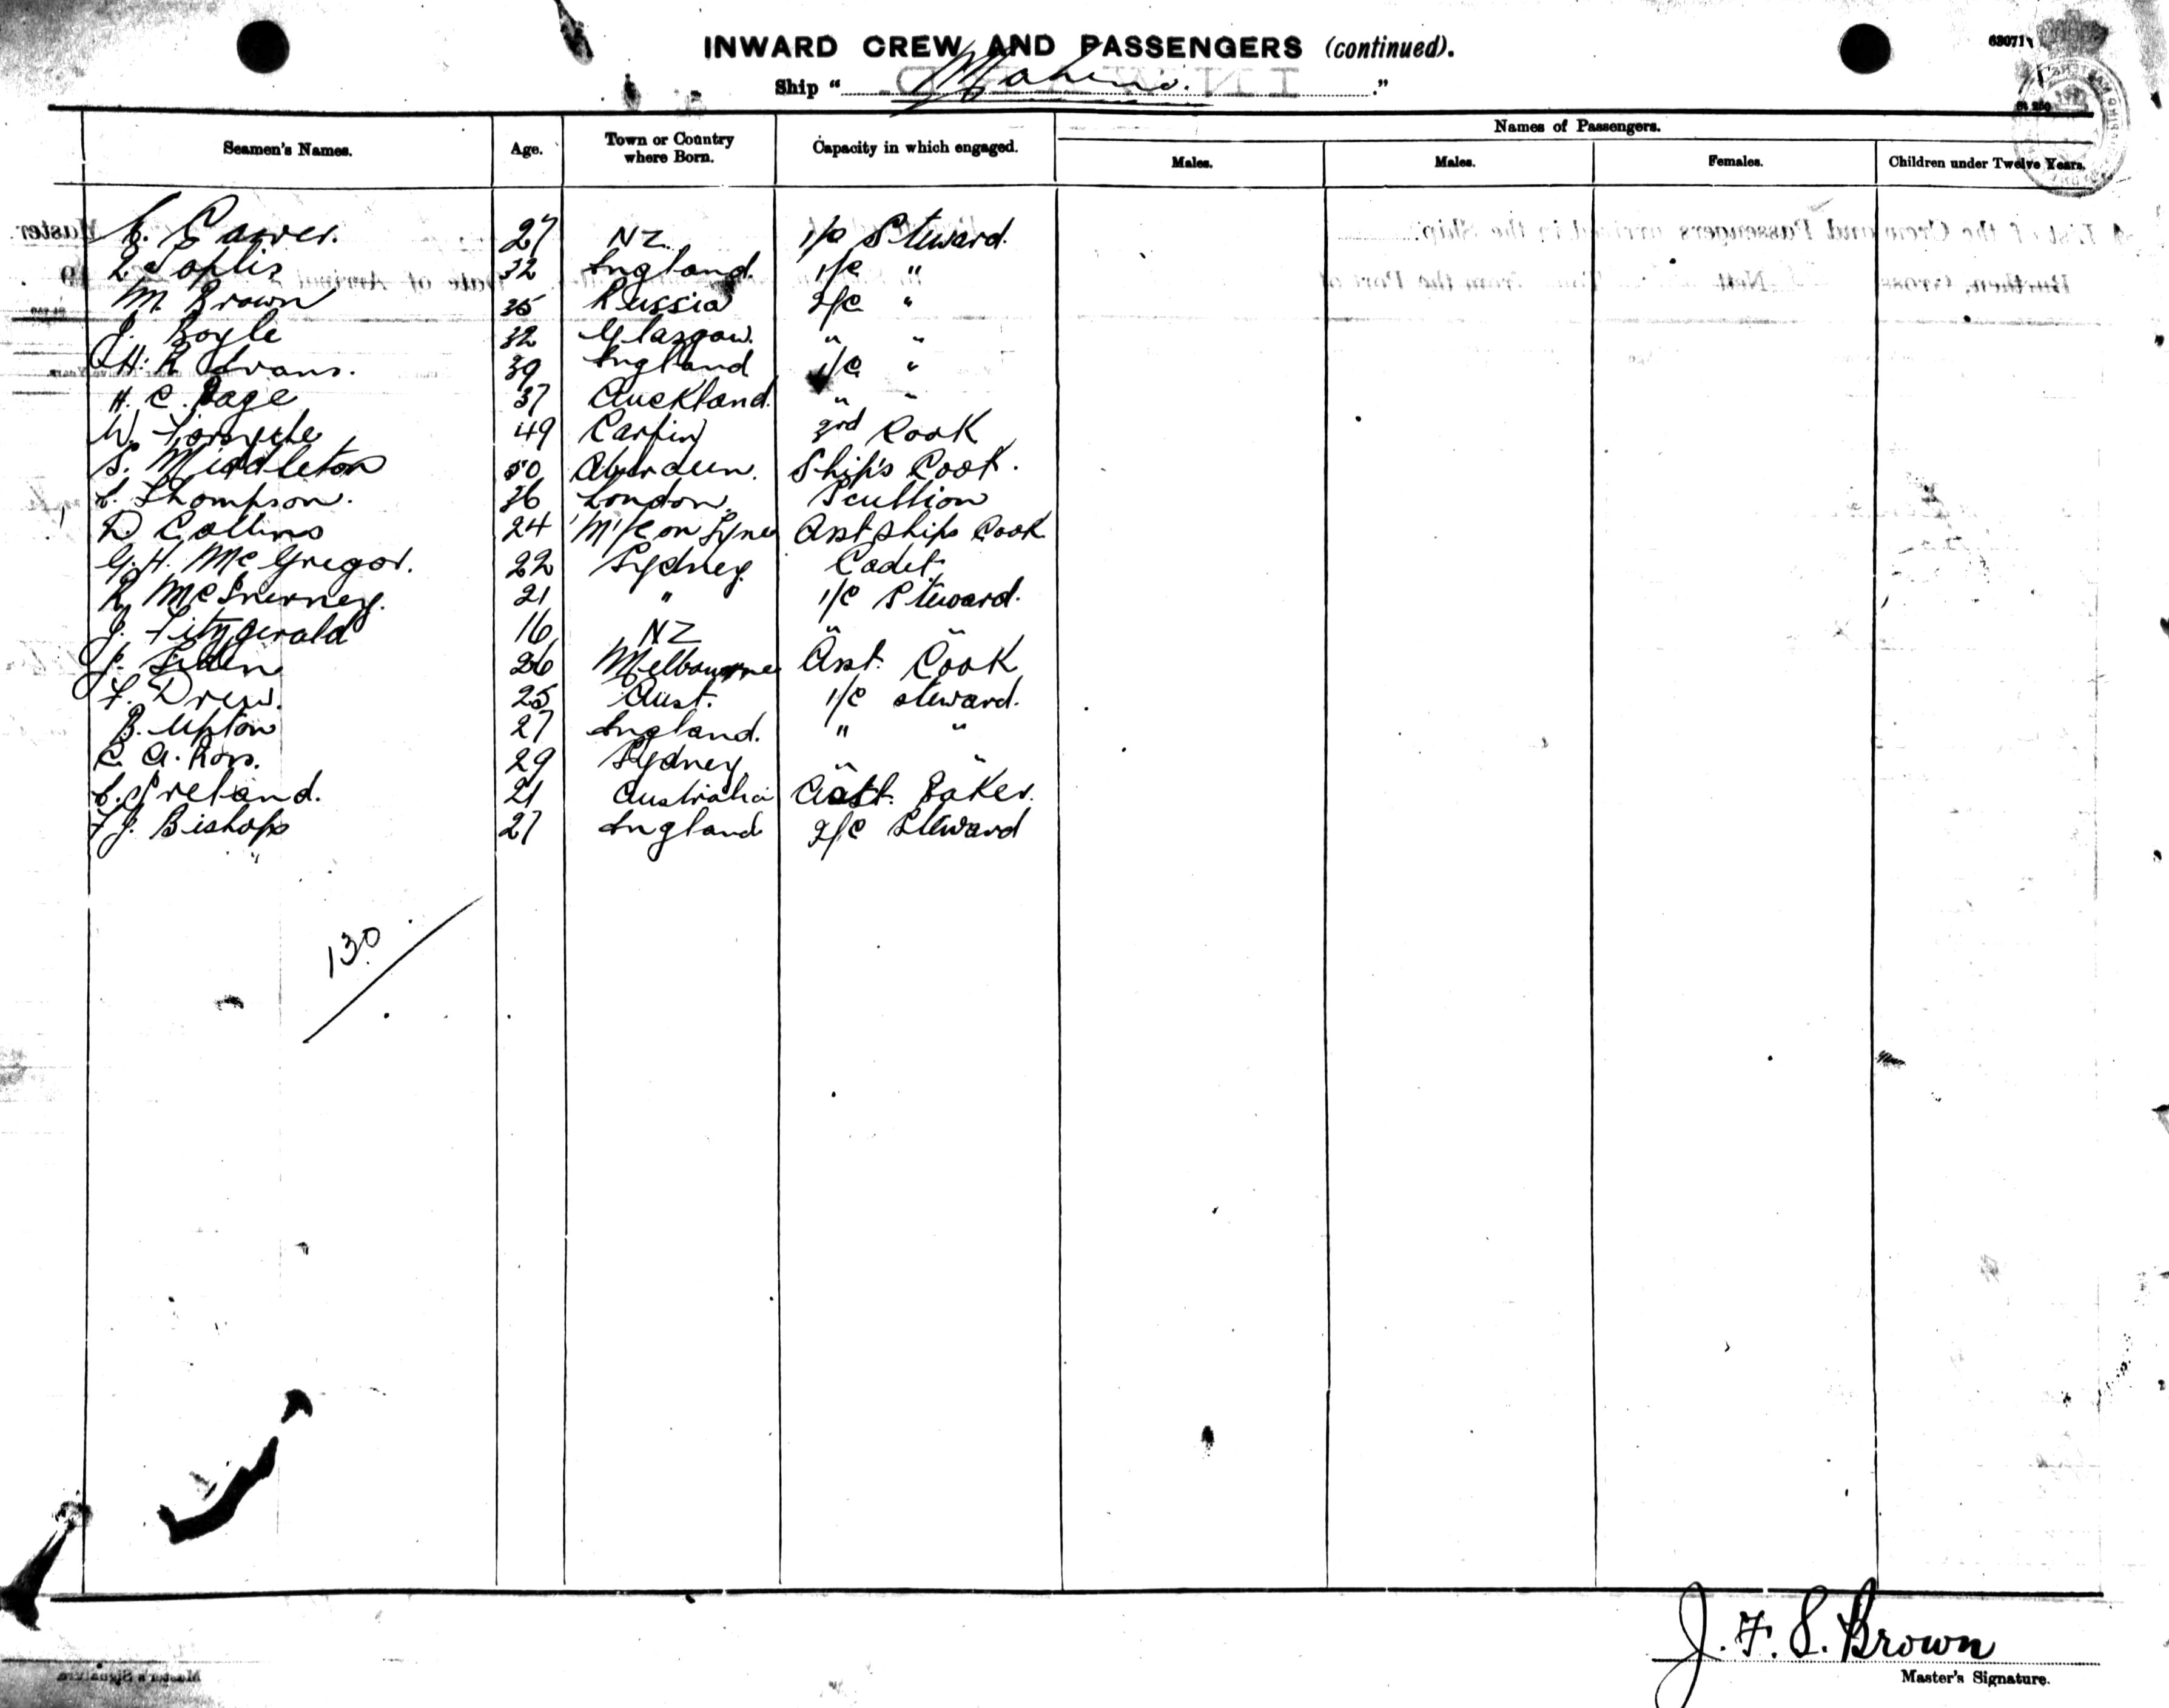 INWARD CREW AND PASSENGERS (continued).
63071
Ship “ Maheno. ”
Names of Passengers.
Seamen's Names. Age. Town or Country where Born. Capacity in which engaged. Males. Males. Females. Children under Twelve Years.
C. 27 N Z. 1/c Steward.
Toplis 32 England. 1/c "
M. Brown 35 Russia 2/c "
J. Boyle 32 Glasgow. " "
A. H. R. Evans. 39 England 1/c "
H. C. Page 37 Auckland. " "
W. Forsythe 49 Carfin 3rd Cook
S. Middleton 50 Aberdeen. Ship's Cook.
C. Thompson. 36 London. Scullion
D. Collins 24 N'/C on Tyne Asst Ships Cook
G. H. McGregor. 22 Sydney. Cadet
R. McInerney. 21 " 1/c Steward.
J. Fitzgerald 16 N Z " "
J. 26 Melbourne Asst. Cook
F. Drew. 25 Aust. 1/c steward.
B. Upton 27 England. " "
C. A. Ross. 29 Sydney " "
C. Ireland. 21 Australia Asst. Baker.
F J. Bishop 27 England 2/c Steward
130
J. F. S. Brown
Master's Signature.